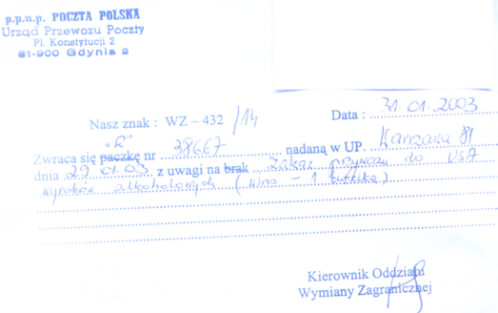 p.p.u.p. POCZTA POLSKA
Urząd Przewozu Poczty
Pl. Konstytucji 2
81-900 Gdynia 2
Nasz znak : WZ – 432 /14
Data : 31 01.2003
"R"
Zwraca się paczkę nr 38667 nadaną w UP. Warszawa 81
dnia 27 01.03 z uwagi na brak zakaz przywozu do USA
wyrobów alkoholowych (wino – 1 butelka)
Kierownik Oddziału
Wymiany Zagranicznej